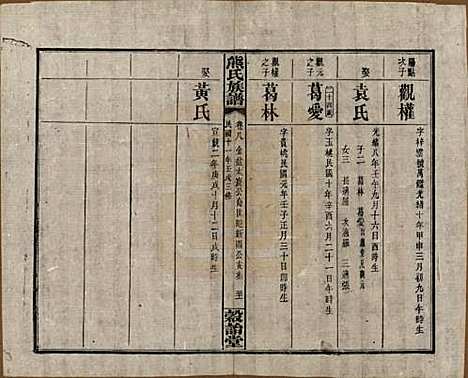 陽點
次子
觀權
字梓雲號萬鑑光緒十年甲申三月初九日午時生
娶
袁氏
光緒八年壬午九月十六日酉時生
子二 葛林 葛愛
女三 長適羅 次適羅 三適張
觀元
之子
二十四派
葛愛
字玉桃民國十年辛酉六月二十一日午時生
觀權
之子
葛林
字貴桃民國元年壬子正月三十日卯時生
熊氏族譜
卷八
民國十一年壬戌三修
穀詒堂
娶
黃氏
宣統二年庚戌十月十二日戌時生